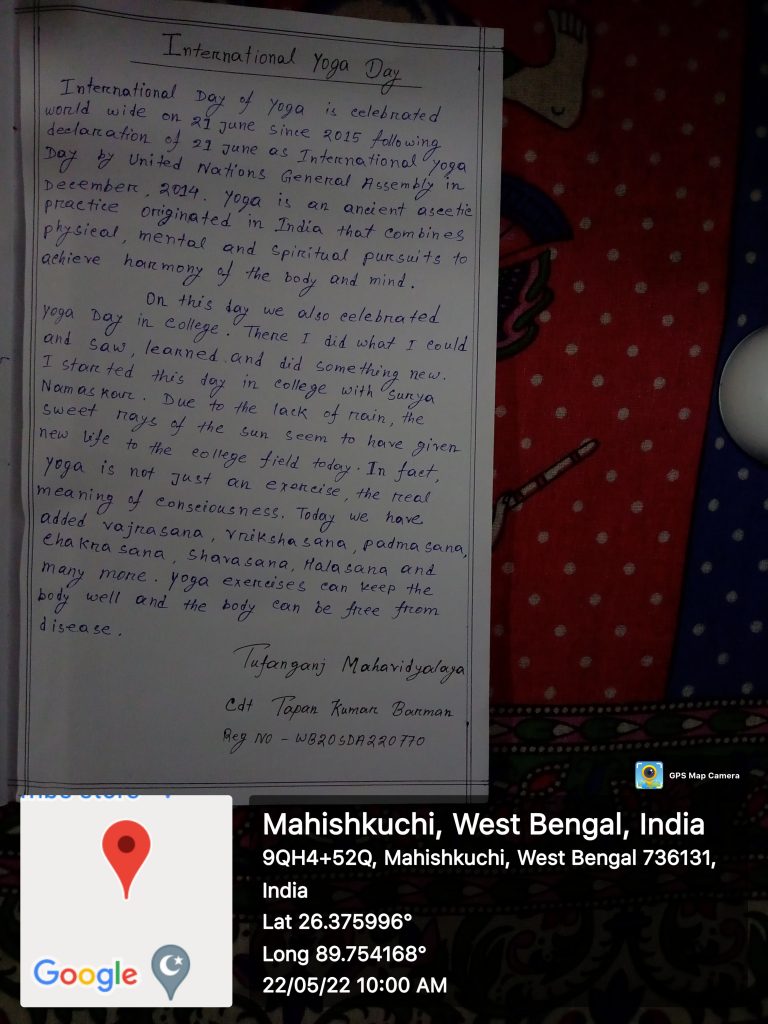 International Yoga Day
International Day of Yoga is celebrated
world wide on 21 June since 2015 following
declaration of 21 June as International Yoga
Day by United Nations General Assembly in
December, 2014. Yoga is an ancient ascetic
practice originated in India that combines
physical, mental and spiritual pursuits to
achieve harmony of the body and mind.
On this day we also celebrated
Yoga Day in college. There I did what I could
and saw, learned and did something new.
I started this day in college with Surya
Namaskar. Due to the lack of rain, the
sweet rays of the sun seem to have given
new life to the college field today. In fact,
Yoga is not just an exercise, the real
meaning of consciousness. Today we have
added vajrasana, vrikshasana, padmasana,
Chakrasana, Shavasana, Halasana and
many more. Yoga exercises can keep the
body well and the body can be free from
disease.
Tufanganj Mahavidyalaya
Cdt Tapan Kumar Barman
Reg No - WB20SDA220770
GPS Map Camera
Mahishkuchi, West Bengal, India
9QH4+52Q, Mahishkuchi, West Bengal 736131,
India
Lat 26.375996°
Long 89.754168°
22/05/22 10:00 AM
Google